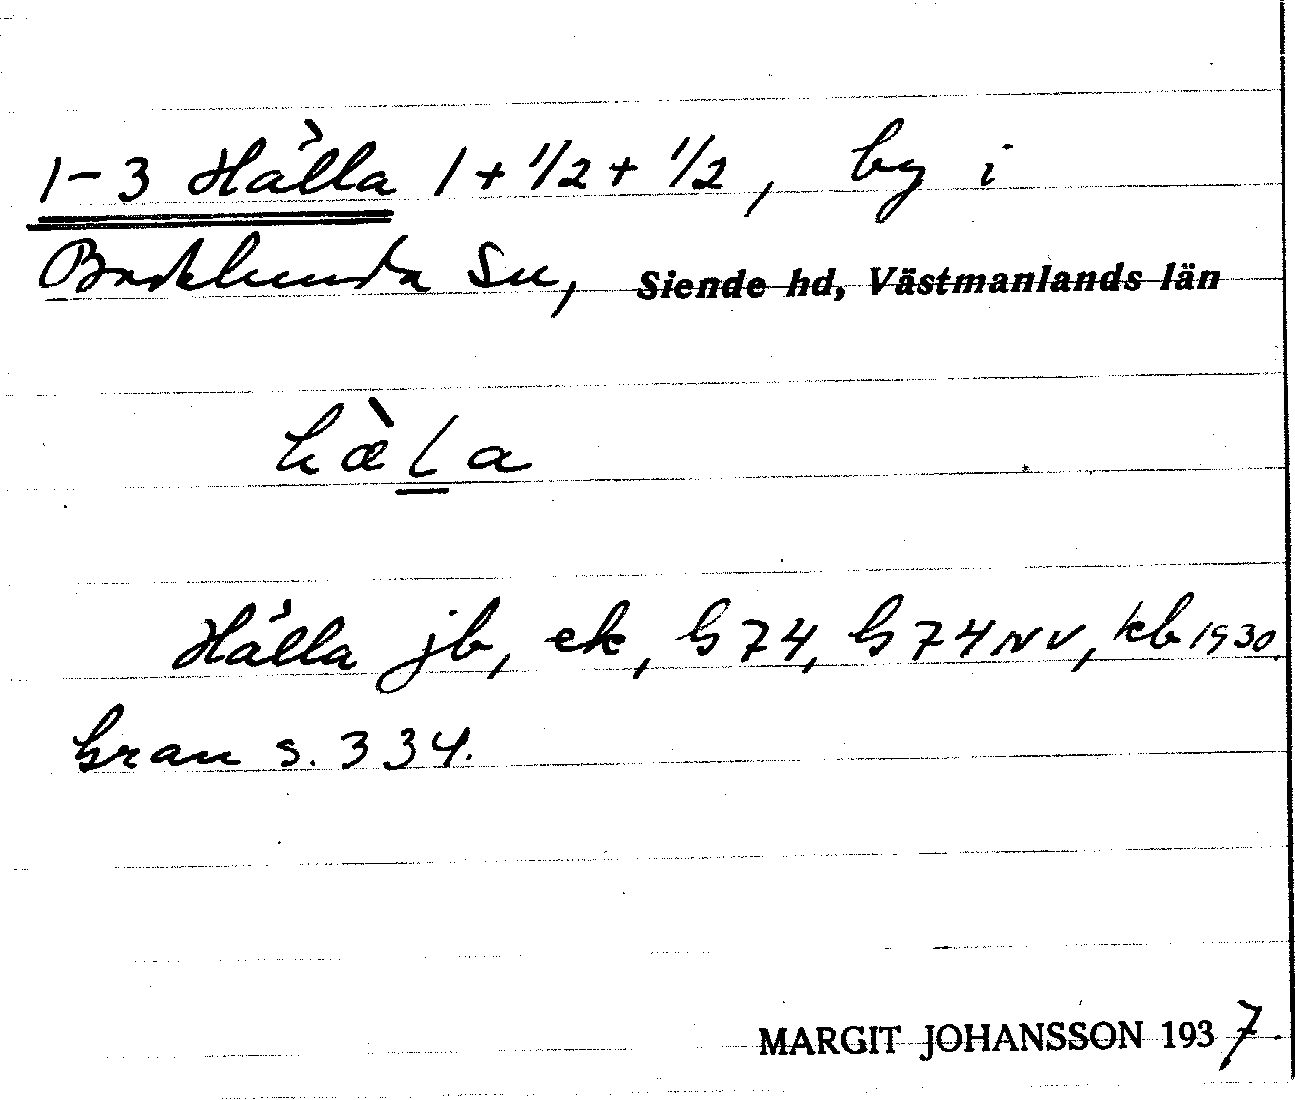 1-3 Hälla 1 + 1/2 + 1/2, by i
Badelunda sn, Siende hd, Västmanlands län
hæ̀la
Hälla jb, ek, G 74, G 74 NV, kb 1930.
Gran s. 334.
MARGIT JOHANSSON 1937.